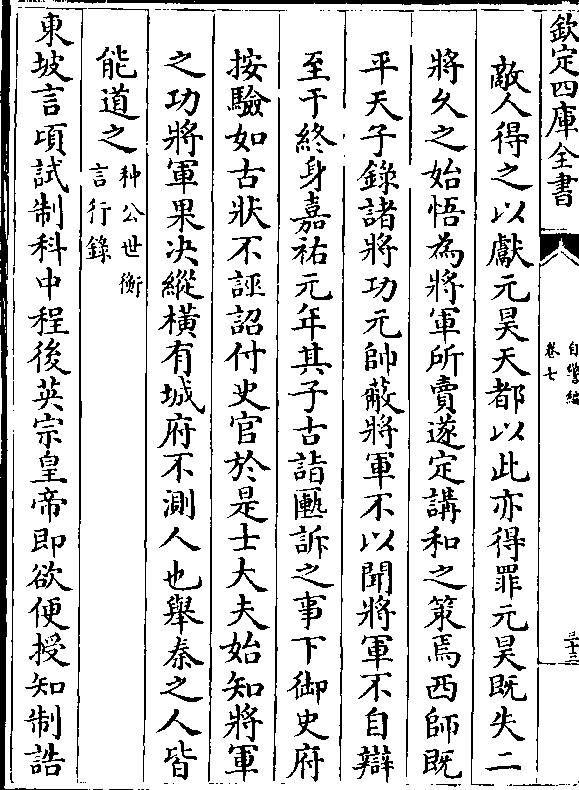 欽定四庫全書
自警編
卷七
三十三
敵人得之以獻元昊天都以此亦得罪元昊既失二
將久之始悟為將軍所賣遂定講和之策焉西師既
平天子錄諸將功元帥蔽將軍不以聞將軍不自辯
至于終身嘉祐元年其子古詣匭訴之事下御史府
按驗如古狀不誣詔付史官於是士大夫始知將軍
之功將軍果決縱橫有城府不測人也舉秦之人皆
能道之种公世衡
言行錄
東坡言頃試制科中程後英宗皇帝即欲便授知制誥